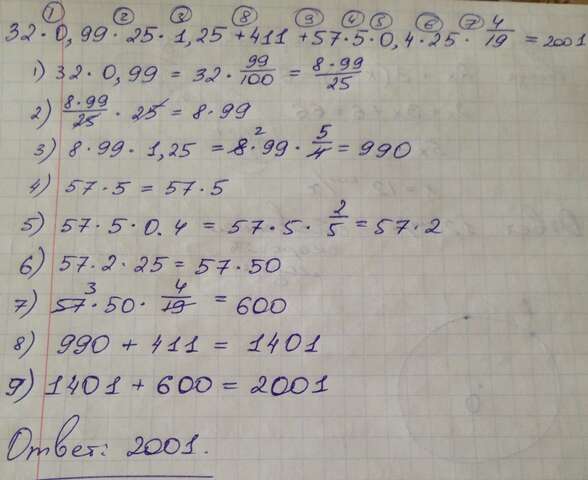 ① ② ③ ⑧ ⑨ ④ ⑤ ⑥ ⑦
32 · 0,99 · 25 · 1,25 + 411 + 57 · 5 · 0,4 · 25 · 4/19 = 2001
1) 32 · 0,99 = 32 · 99/100 = 8·99/25
2) 8·99/25 · 25 = 8 · 99
3) 8 2 · 99 · 1,25 = 8 · 99 · 5/4 = 990
4) 57 · 5 = 57 · 5
5) 57 · 5 · 0.4 = 57 · 5 · 2/5 = 57 · 2
6) 57 · 2 · 25 = 57 · 50
7) 57 3 · 50 · 4/19 = 600
8) 990 + 411 = 1401
9) 1401 + 600 = 2001
Ответ: 2001.